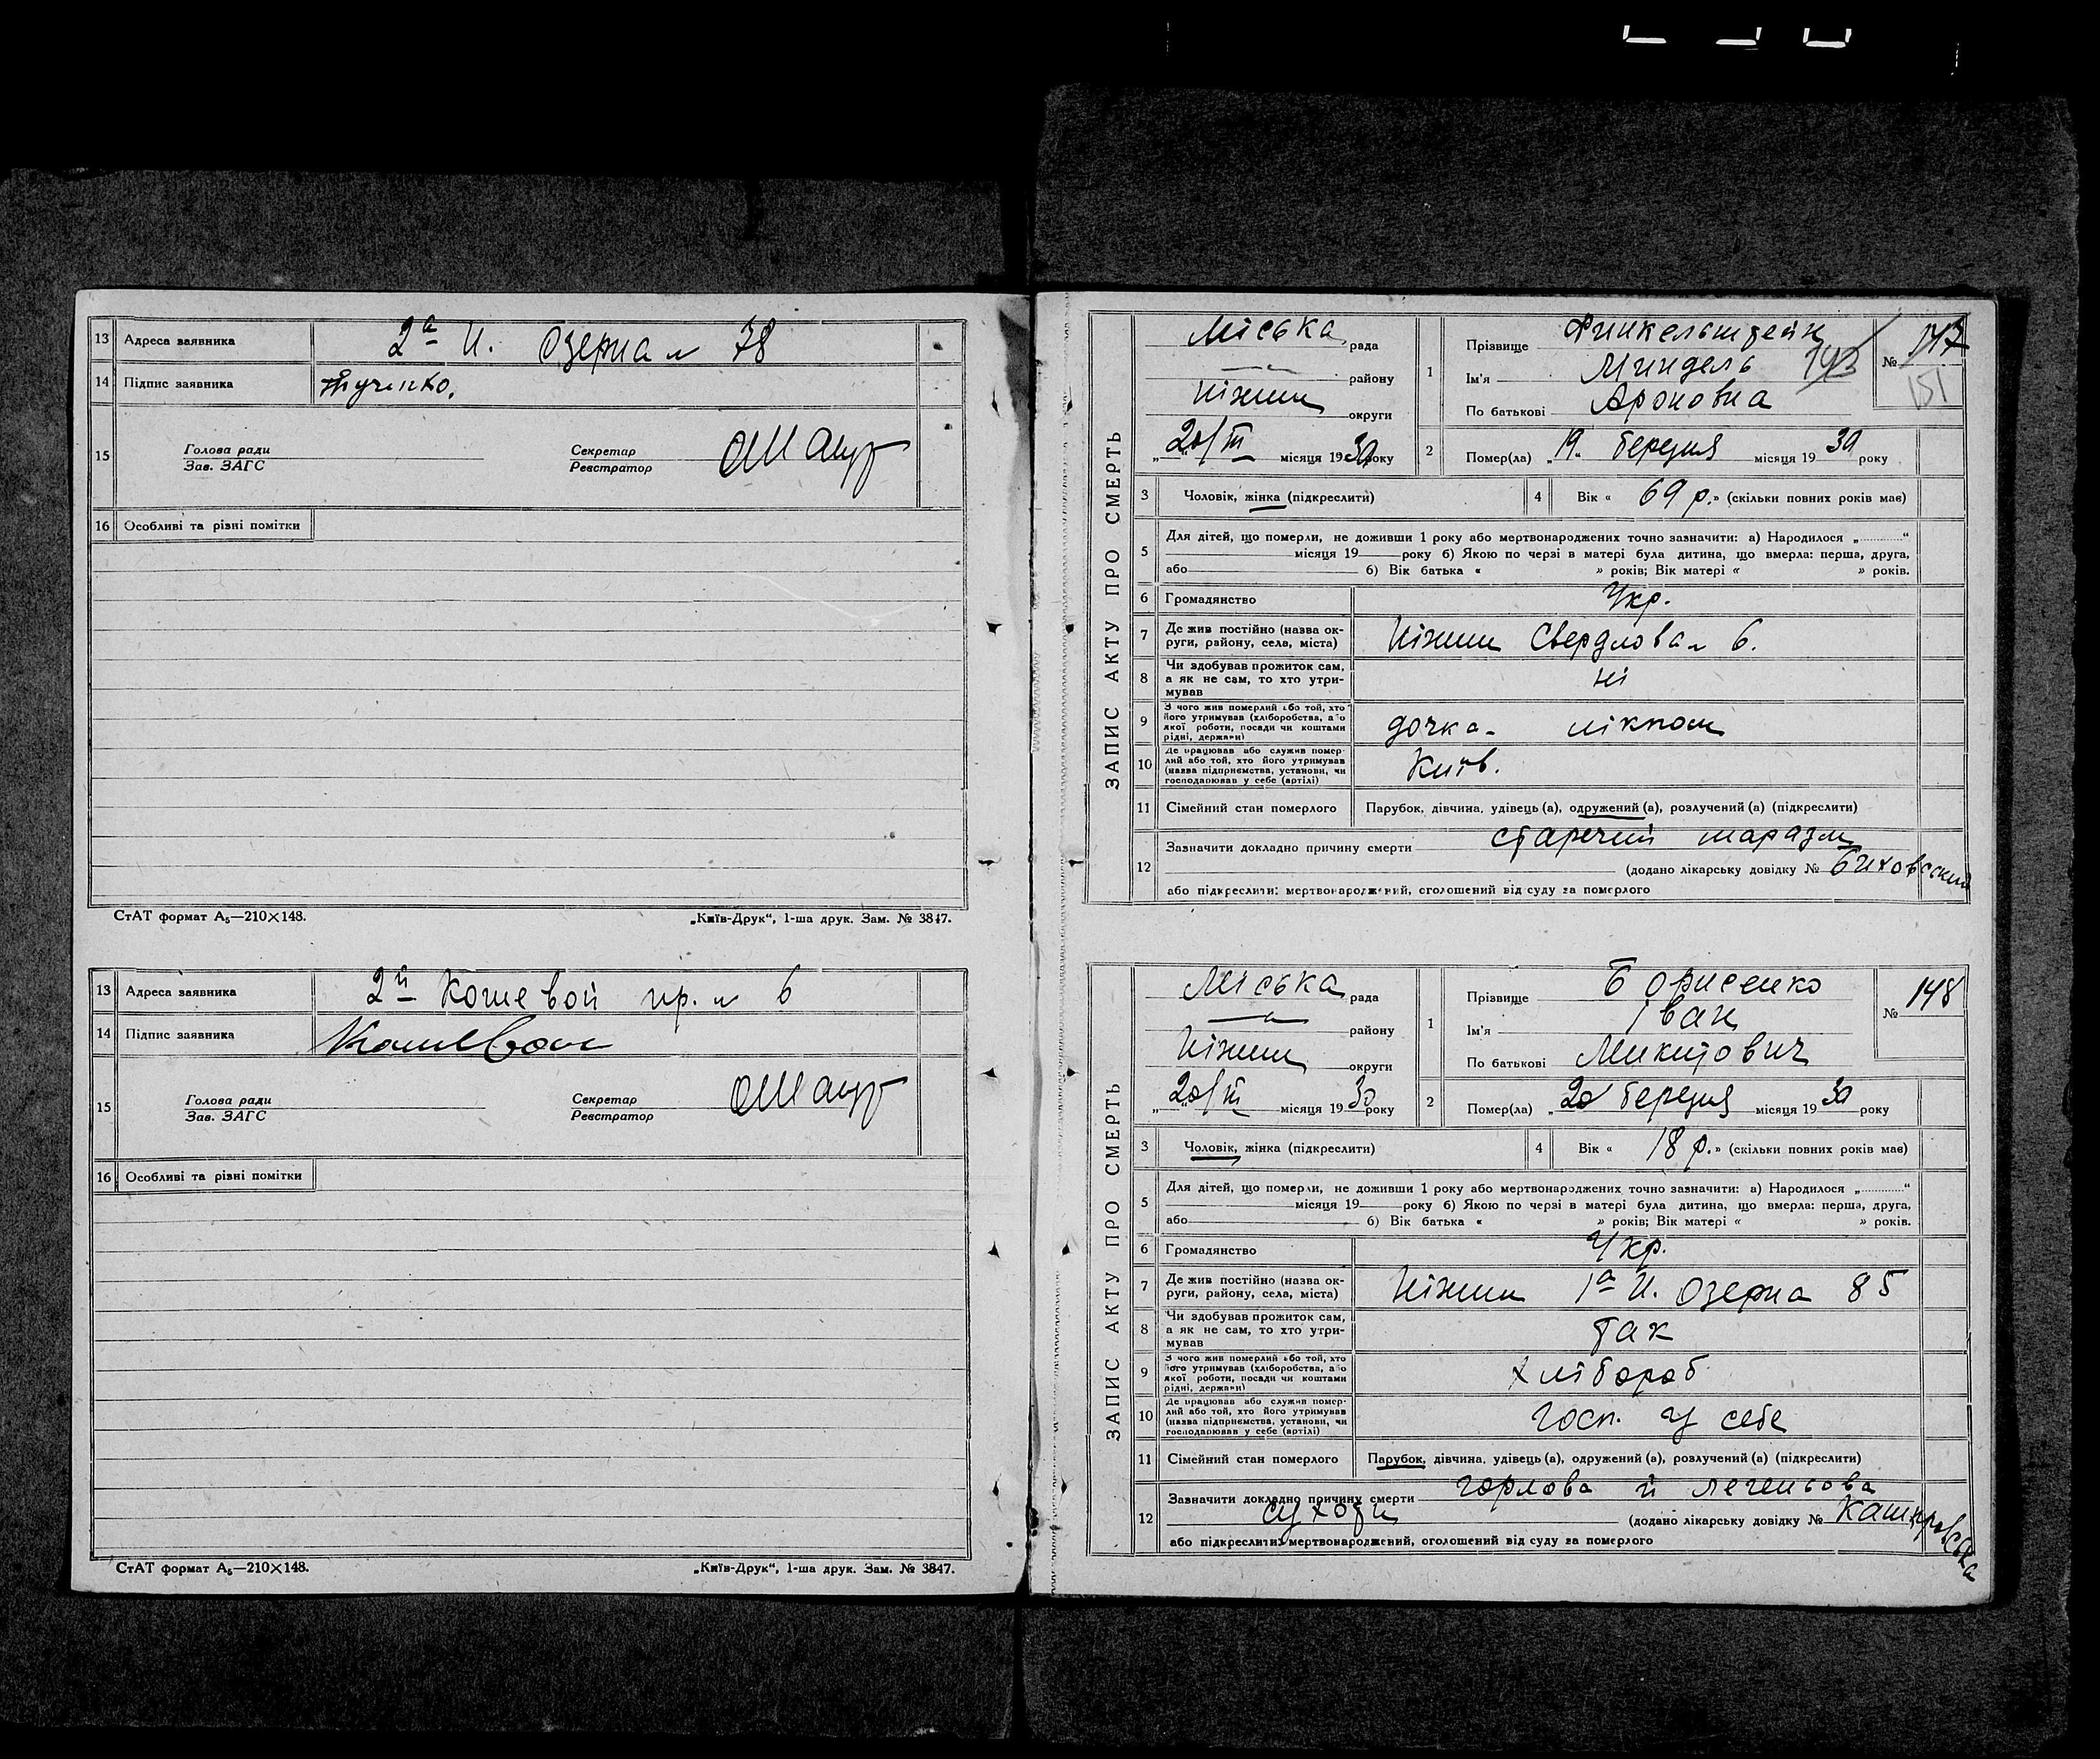 13 Адреса заявника 2а Н. Озерна № 78
14 Підпис заявника
15 Голова ради
Зав. ЗАГС
Секретар
Реєстратор
16 Особливі та різні помітки
СтАТ формат А5—210×148. „Київ-Друк“, 1-ша друк. Зам. № 3847.
13 Адреса заявника 2й Кошевой пр. № 6
14 Підпис заявника
15 Голова ради
Зав. ЗАГС
Секретар
Реєстратор
16 Особливі та різні помітки
СтАТ формат А5—210×148. „Київ-Друк“, 1-ша друк. Зам. № 3847.
ЗАПИС АКТУ ПРО СМЕРТЬ
Міська рада
району
Ніжин округи
„20/III місяця 1930 року
1 Прізвище Финкельштейн
Ім'я Миндель
По батькові Ароновна
№ 147
143
151
2 Помер(ла) „19„ березня місяця 1930 року
3 Чоловік, жінка (підкреслити)
4 Вік « 69 р.» (скільки повних років має)
5 Для дітей, що померли, не доживши 1 року або мертвонароджених точно зазначити: а) Народилося „..........“
місяця 19 року б) Якою по черзі в матері була дитина, що вмерла: перша, друга,
або 6) Вік батька « » років; Вік матері « » років.
6 Громадянство Укр.
7 Де жив постійно (назва ок-
руги, району, села, міста) Ніжин Свердлова № 6.
8 Чи здобував прожиток сам,
а як не сам, то хто утри-
мував ні
9 З чого жив померлий або той, хто
його утримував (хліборобства, або
якої роботи, посади чи коштами
рідні, держави) дочка - лікпом
10 Де працював або служив помер-
лий або той, хто його утримував
(назва підприємства, установи, чи
господарював у себе (артілі) Київ.
11 Сімейний стан померлого Парубок, дівчина, удівець (а), одружений (а), розлучений (а) (підкреслити)
12 Зазначити докладно причину смерти старечий маразм
(додано лікарську довідку № Биховський
або підкреслити: мертвонароджений, оголошений від суду за померлого
ЗАПИС АКТУ ПРО СМЕРТЬ
Міська рада
району
Ніжин округи
„20/III місяця 1930 року
1 Прізвище Борисенко
Ім'я Іван
По батькові Микитович
№ 148
2 Помер(ла) „20 березня місяця 1930 року
3 Чоловік, жінка (підкреслити)
4 Вік « 18 р.» (скільки повних років має)
5 Для дітей, що померли, не доживши 1 року або мертвонароджених точно зазначити: а) Народилося „..........“
місяця 19 року б) Якою по черзі в матері була дитина, що вмерла: перша, друга,
або 6) Вік батька « » років; Вік матері « » років.
6 Громадянство Укр.
7 Де жив постійно (назва ок-
руги, району, села, міста) Ніжин 1а Н. Озерна 85
8 Чи здобував прожиток сам,
а як не сам, то хто утри-
мував так
9 З чого жив померлий або той, хто
його утримував (хліборобства, або
якої роботи, посади чи коштами
рідні, держави) хлібороб
10 Де працював або служив помер-
лий або той, хто його утримував
(назва підприємства, установи, чи
господарював у себе (артілі) госп. у себе
11 Сімейний стан померлого Парубок, дівчина, удівець (а), одружений (а), розлучений (а) (підкреслити)
Зазначити докладно причину смерти горлова й легеньова
12 сухоти (додано лікарську довідку № Кашировська
або підкреслити: мертвонароджений, оголошений від суду за померлого